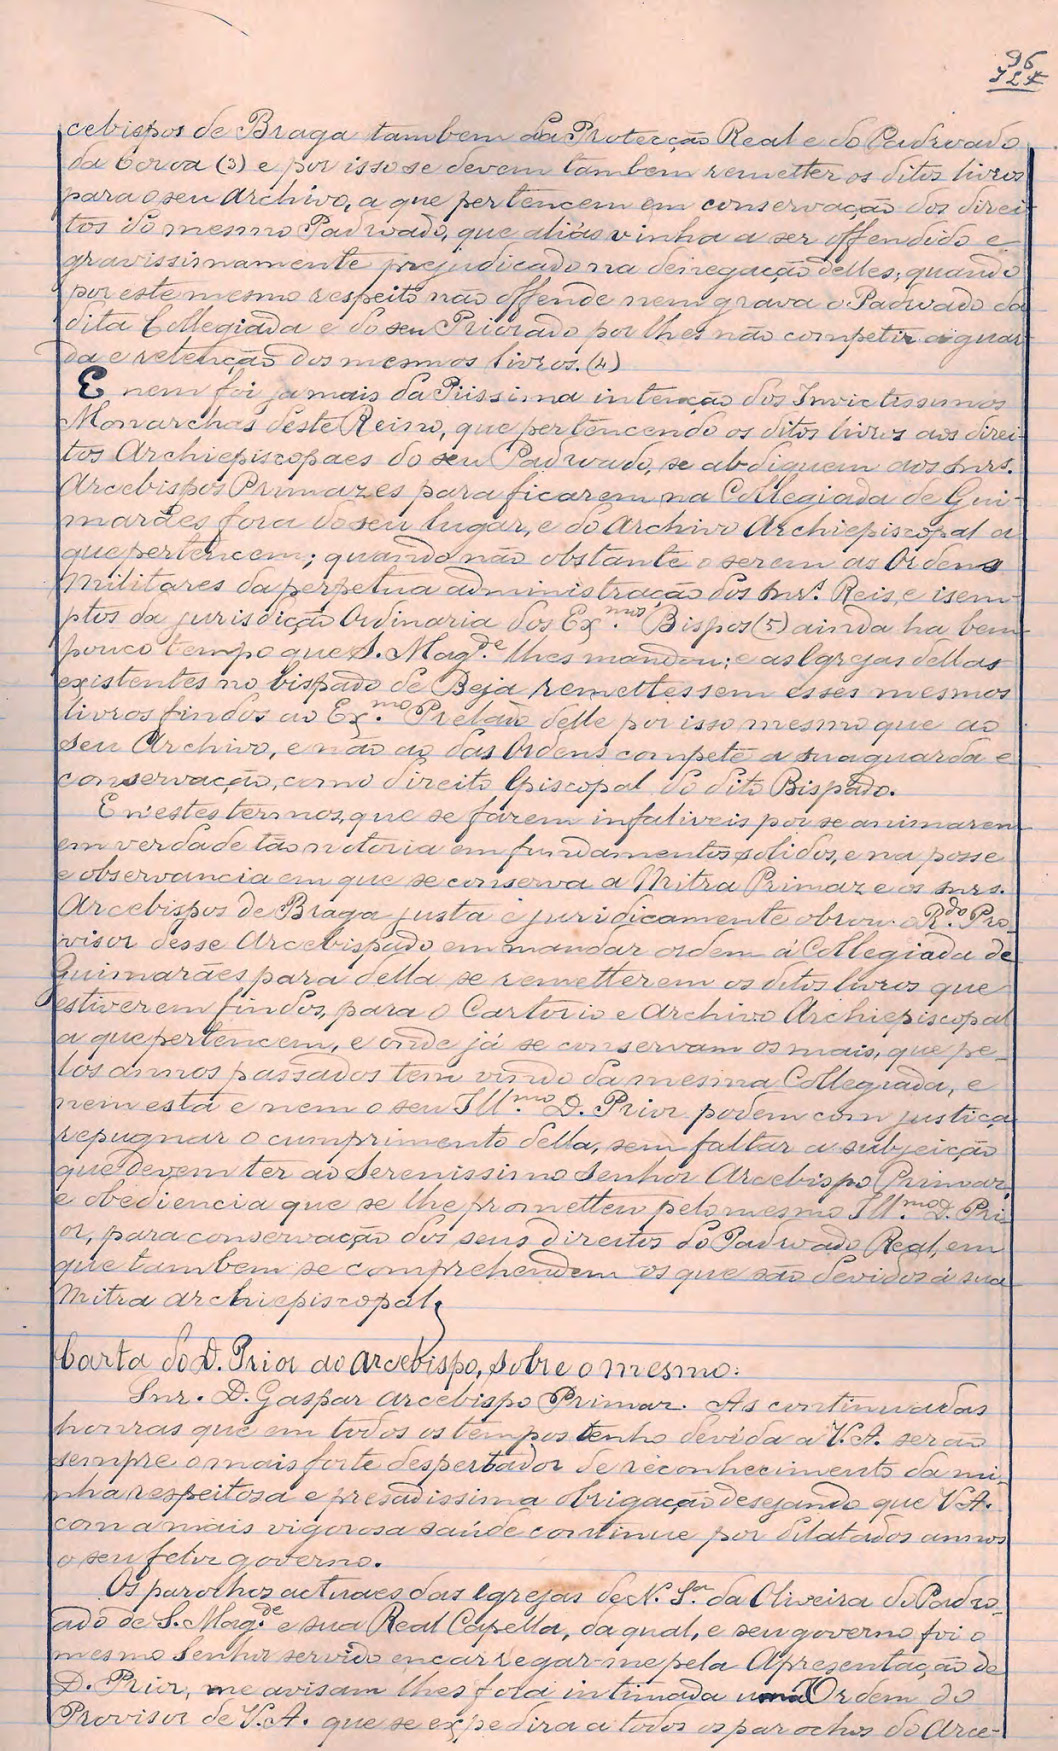 96
cebispos de Braga tambem da Protecção Real e do Padroado
da Coroa (3) e por isso se devem tambem remetter os ditos livros
para o seu Archivo, a que pertencem em conservação dos direi-
tos do mesmo Padroado, que aliás vinha a ser offendido e
gravissimamente prejudicado na denegação delles; quando
por este mesmo respeito não offende nem grava o Padroado da
dita Collegiada e do seu Priorado por lhes não competir a guar-
da e retenção dos mesmos livros. (4)
E nem foi jamais da Piissima intenção dos Invictissimos
Monarchas deste Reino, que pertencendo os ditos livros aos direi-
tos Archiepiscopaes do seu Padroado, se abdiquem aos Snrs.
Arcebispos Primazes para ficarem na Collegiada de Gui-
marães fora do seu lugar, e do Archivo Archiepiscopal a
que pertencem; quando não obstante o serem as Ordens
Militares da perpetua administração dos Snr.s Reis, e isem-
ptos da jurisdicção Ordinaria dos Ex.mos Bispos (5) ainda ha bem
pouco tempo que S. Mag.de lhes mandou; e as Igrejas dellas
existentes no bispado de Beja remettessem esses mesmos
livros findos ao Ex.mo Prelado delle por isso mesmo que ao
seu Archivo, e não ao das Ordens compete a sua guarda e
conservação, como direito Episcopal do dito Bispado.
En'estes termos, que se fazem infaliveis por se animarem
em verdade tão notoria em fundamentos solidos, e na posse
e observancia em que se conserva a Mitra Primaz e os Snrs.
Arcebispos de Braga justa e juridicamente obrou o R.do Pro-
visor desse Arcebispado em mandar ordem á Collegiada de
Guimarães para della se remetterem os ditos livros que
estiverem findos, para o Cartorio e Archivo Archiepiscopal
a que pertencem, e onde já se conservam os mais, que pe-
los annos passados tem vindo da mesma Collegiada, e
nem esta e nem o seu Ill.mo D. Prior podem com justiça
repugnar o cumprimento della, sem faltar a subjeição
que devem ter ao Serenissimo Senhor Arcebispo Primaz,
e obediencia que se lhe prometteu pelo mesmo Ill.mo D. Pri-
or, para conservação dos seus direitos do Padroado Real, em
que tambem se comprehendem os que são devidos á sua
Mitra Archiepiscopal.
Carta do D. Prior ao Arcebispo, sobre o mesmo:
Snr. D. Gaspar Arcebispo Primaz. As continuadas
honras que em todos os tempos tenho devida a V. A. serão
sempre o mais forte despertador de reconhecimento da mi-
nha respeitosa e presadissima obrigação desejando que V. A.
com a mais vigorosa saúde continue por dilatados annos
o seu feliz governo.
Os parochos actuaes das Igrejas de N. Sr.a da Oliveira do Padro-
ado de S. Mag.de e sua Real Capella, da qual, e seu governo foi o
mesmo Senhor servido encarregar-me pela Apresentação de
D. Prior, me avisam lhes fora intimada uma Ordem do
Provisor de V. A. que se expedira a todos os parochos do Arce-